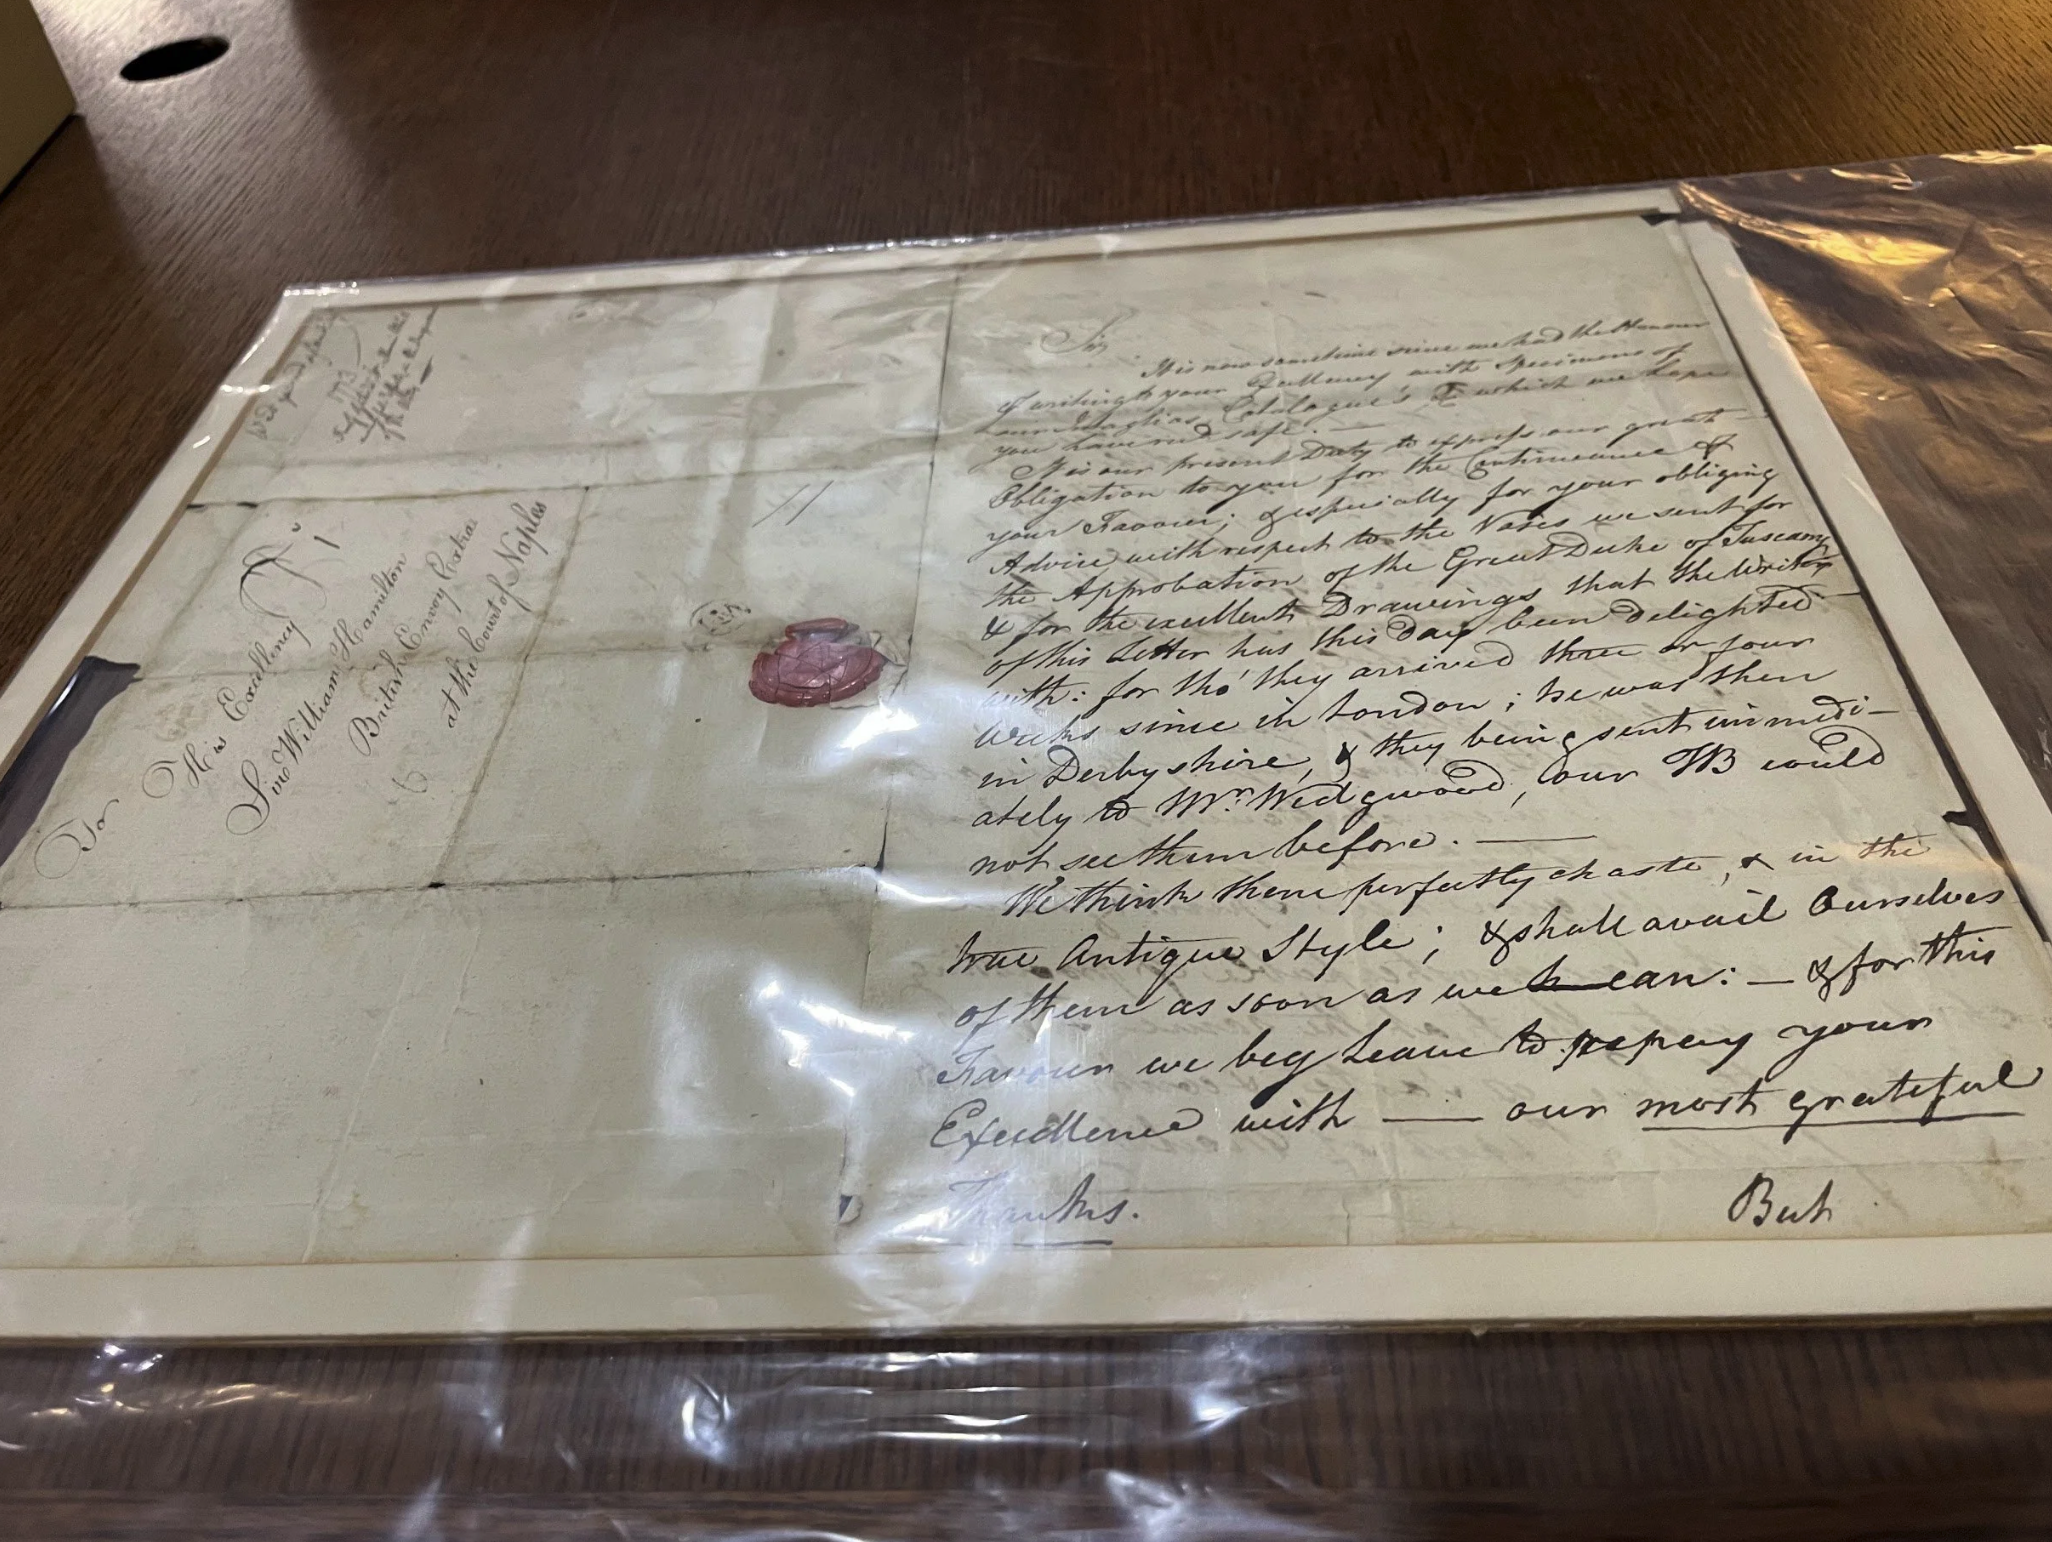 To
His Excellency
Sir William Hamilton
British Envoy Extra:
at the Court of Naples
Sir
It is now sometime since we had the Honour
of writing to your Excellency with Specimens of
our Intaglios, Catalogue's & which we hope
you have recd safe. —
It is our present Duty to express our great
Obligation to you for the Continuance of
your Favour; & especially for your obliging
Advice with respect to the Vases we sent for
the Approbation of the Great Duke of Tuscany,
& for the excellent Drawings that the Writer
of this Letter has this Day been delighted
with: for tho' they arrived three or four
Weeks since in London; he was then
in Derbyshire, & they being sent immedi-
ately to Mr. Wedgwood, our TB could
not see them before. —
We think them perfectly chaste, & in the
true Antique Style; & shall avail Ourselves
of them as soon as we can: — & for this
Favour we beg Leave to repay your
Excellence with — our most grateful
Thanks.
But